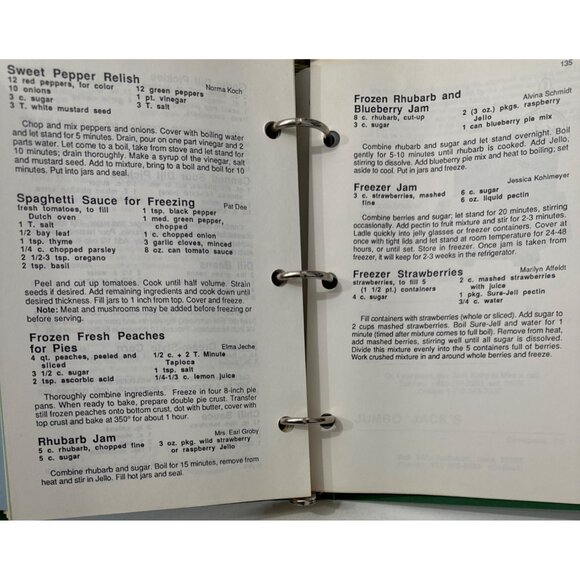 Sweet Pepper Relish
Norma Koch
12 red peppers, for color
10 onions
3 c. sugar
3 T. white mustard seed
12 green peppers
1 pt. vinegar
3 T. salt
Chop and mix peppers and onions. Cover with boiling water
and let stand for 5 minutes. Drain, pour on one part vinegar and 2
parts water. Let come to a boil, take from stove and let stand for
10 minutes; drain thoroughly. Make a syrup of the vinegar, salt
and mustard seed. Add to mixture, bring to a boil and boil for 10
minutes. Put into jars and seal.
Spaghetti Sauce for Freezing
Pat Dee
fresh tomatoes, to fill
Dutch oven
1 T. salt
1/2 bay leaf
1 tsp. thyme
1/4 c. chopped parsley
2 1/2-3 tsp. oregano
2 tsp. basil
1 tsp. black pepper
1 med. green pepper,
chopped
1 c. chopped onion
3 garlic cloves, minced
8 oz. can tomato sauce
Peel and cut up tomatoes. Cook until half volume. Strain
seeds if desired. Add remaining ingredients and cook down until
desired thickness. Fill jars to 1 inch from top. Cover and freeze.
Note: Meat and mushrooms may be added before freezing or
before serving.
Frozen Fresh Peaches
for Pies
Elma Jeche
4 qt. peaches, peeled and
sliced
3 1/2 c. sugar
2 tsp. ascorbic acid
1/2 c. + 2 T. Minute
Tapioca
1 tsp. salt
1/4-1/3 c. lemon juice
Thoroughly combine ingredients. Freeze in four 8-inch pie
pans. When ready to bake, prepare double pie crust. Transfer
still frozen peaches onto bottom crust, dot with butter, cover with
top crust and bake at 350° for about 1 hour.
Rhubarb Jam
Mrs. Earl Groby
5 c. rhubarb, chopped fine
5 c. sugar
3 oz. pkg. wild strawberry
or raspberry Jello
Combine rhubarb and sugar. Boil for 15 minutes, remove from
heat and stir in Jello. Fill hot jars and seal.
135
Frozen Rhubarb and
Blueberry Jam
Alvina Schmidt
8 c. rhubarb, cut-up
3 c. sugar
2 (3 oz.) pkgs. raspberry
Jello
1 can blueberry pie mix
Combine rhubarb and sugar and let stand overnight. Boil
gently for 5-10 minutes until rhubarb is cooked. Add Jello,
stirring to dissolve. Add blueberry pie mix and heat to boiling; set
aside to cool. Put in jars and freeze.
Freezer Jam
Jessica Kohlmeyer
3 c. strawberries, mashed
fine
6 c. sugar
6 oz. liquid pectin
Combine berries and sugar; let stand for 20 minutes, stirring
occasionally. Add pectin to fruit mixture and stir for 2-3 minutes.
Ladle quickly into jelly glasses or freezer containers. Cover at
once with tight lids and let stand at room temperature for 24-48
hours, or until set. Store in freezer. Once jam is taken from
freezer, it will keep for 2-3 weeks in the refrigerator.
Freezer Strawberries
Marilyn Affeldt
strawberries, to fill 5
(1 1/2 pt.) containers
4 c. sugar
2 c. mashed strawberries
with juice
1 pkg. Sure-Jell pectin
3/4 c. water
Fill containers with strawberries (whole or sliced). Add sugar to
2 cups mashed strawberries. Boil Sure-Jell and water for 1
minute (timed after mixture comes to full boil). Remove from heat,
add mashed berries, stirring well until all sugar is dissolved.
Divide this mixture evenly into the 5 containers full of berries.
Work crushed mixture in and around whole berries and freeze.